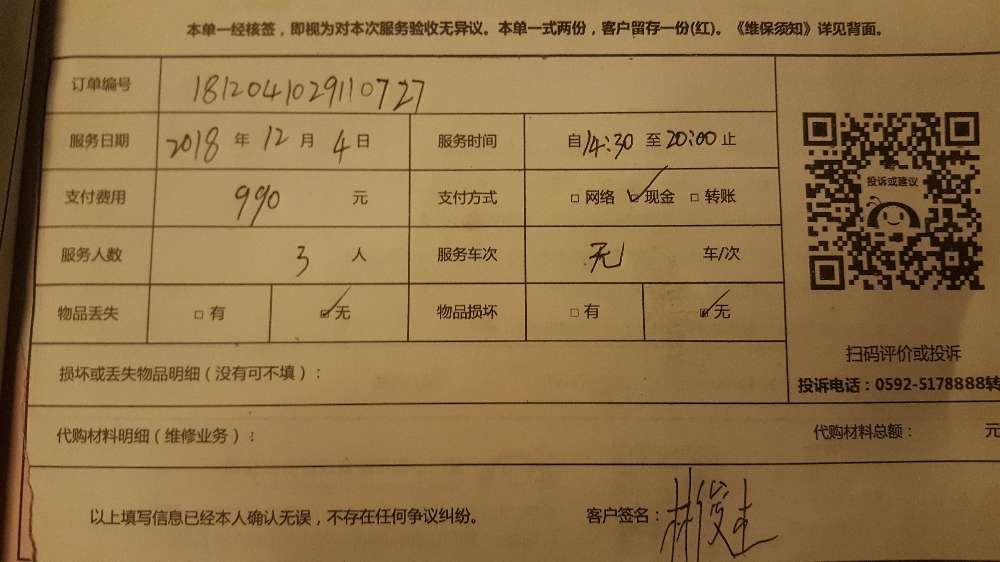 本单一经核签，即视为对本次服务验收无异议。本单一式两份，客户留存一份(红)。《维保须知》详见背面。
订单编号 1812041029110727
服务日期 2018 年 12 月 4 日 服务时间 自14:30 至 20:00 止
支付费用 990 元 支付方式 □ 网络 □ 现金 □ 转账
投诉或建议
服务人数 3 人 服务车次 无 车/次
物品丢失 □ 有 □ 无 物品损坏 □ 有 □ 无
扫码评价或投诉
损坏或丢失物品明细（没有可不填）：
投诉电话：0592-5178888转
代购材料明细（维修业务）： 代购材料总额： 元
以上填写信息已经本人确认无误，不存在任何争议纠纷。 客户签名：